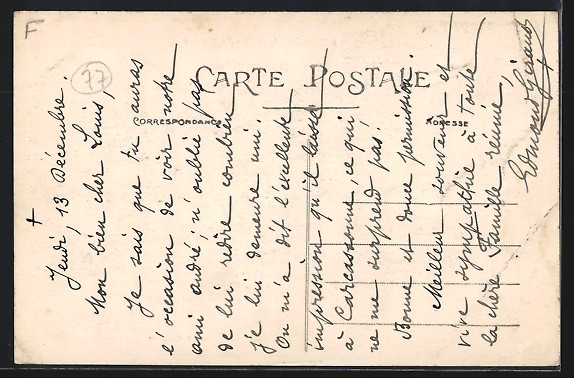 F
77
CARTE POSTALE
CORRESPONDANCE
ADRESSE
+
Jeudi, 13 Décembre.
Mon bien cher Louis,
Je sais que tu auras
l'occasion de voir notre
ami andré; n'oublie pas
de lui redire combien
je lui demeure uni.
On m'a dit l'excellente
impression qu'il laisse
à Carcassonne, ce qui
ne me surprend pas.
Bonne et douce permission.
Meilleur souvenir et
vive sympathie à toute
la chère famille réunie,
Edmond